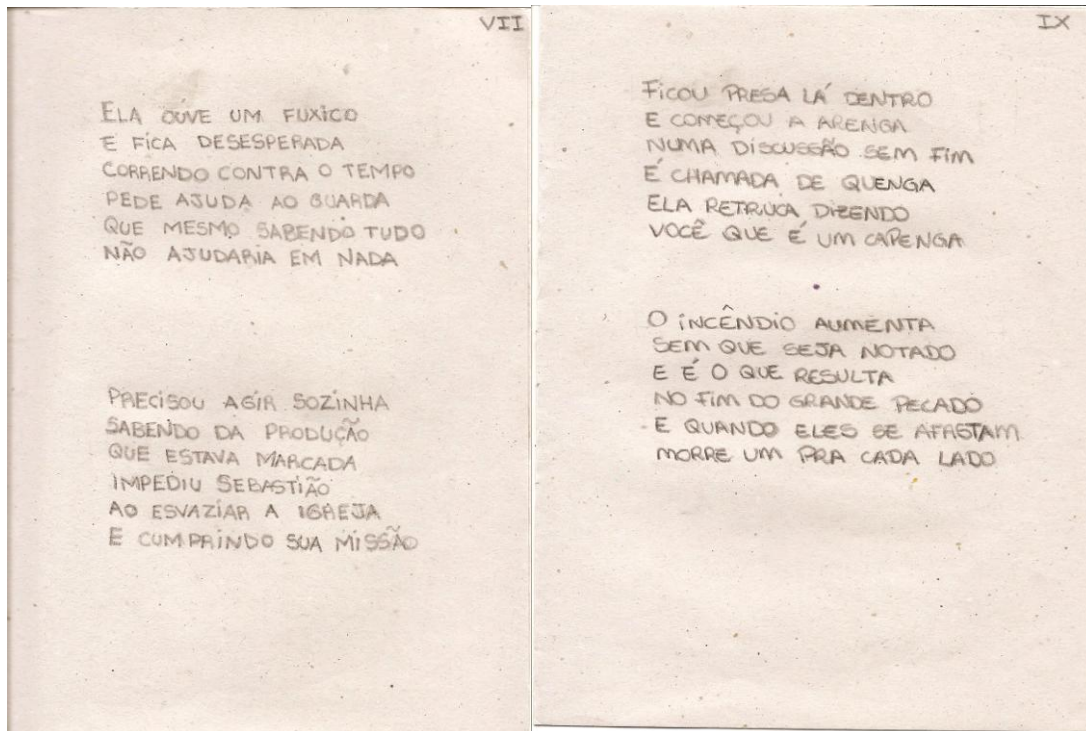 VII
ELA OUVE UM FUXICO
E FICA DESESPERADA
CORRENDO CONTRA O TEMPO
PEDE AJUDA AO GUARDA
QUE MESMO SABENDO TUDO
NÃO AJUDARIA EM NADA
PRECISOU AGIR SOZINHA
SABENDO DA PRODUÇÃO
QUE ESTAVA MARCADA
IMPEDIU SEBASTIÃO
AO ESVAZIAR A IGREJA
E CUMPRINDO SUA MISSÃO
IX
FICOU PRESA LÁ DENTRO
E COMEÇOU A ARENGA
NUMA DISCUSSÃO SEM FIM
É CHAMADA DE QUENGA
ELA RETRUCA DIZENDO
VOCÊ QUE É UM CAPENGA
O INCÊNDIO AUMENTA
SEM QUE SEJA NOTADO
E É O QUE RESULTA
NO FIM DO GRANDE PECADO
E QUANDO ELES SE AFASTAM
MORRE UM PRA CADA LADO